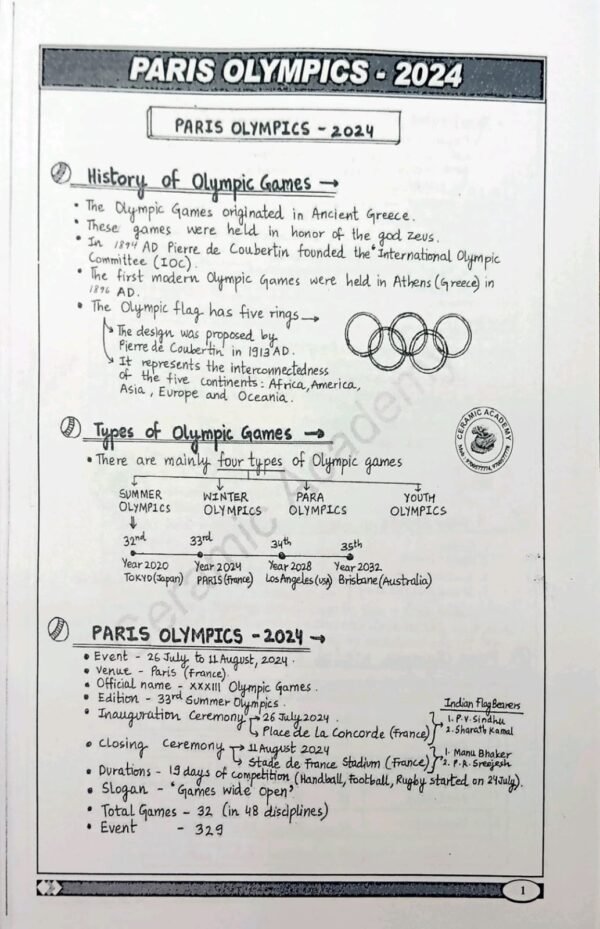 PARIS OLYMPICS - 2024
PARIS OLYMPICS - 2024
History of Olympic Games →
• The Olympic Games originated in Ancient Greece.
• These games were held in honor of the god Zeus.
• In 1894 AD Pierre de Coubertin founded the 'International Olympic
Committee (IOC).
• The first modern Olympic Games were held in Athens (Greece) in
1896 AD.
• The Olympic flag has five rings →
The design was proposed by
Pierre de Coubertin in 1913 AD.
It represents the interconnectedness
of the five continents: Africa, America,
Asia, Europe and Oceania.
Types of Olympic Games →
CERAMIC ACADEMY
• There are mainly four types of Olympic games
SUMMER OLYMPICS WINTER OLYMPICS PARA OLYMPICS YOUTH OLYMPICS
32nd 33rd 34th 35th
Year 2020 Year 2024 Year 2028 Year 2032
TOKYO (Japan) PARIS (France) Los Angeles (USA) Brisbane (Australia)
Ceramic Academy
PARIS OLYMPICS - 2024 →
• Event - 26 July to 11 August, 2024.
• Venue - Paris (France).
• Official name - XXXIII Olympic Games.
• Edition - 33rd Summer Olympics.
Indian Flag Bearers
• Inauguration Ceremony → 26 July 2024. 1. P.V. Sindhu
Place de la Concorde (France) 2. Sharath Kamal
• Closing Ceremony → 11 August 2024 1. Manu Bhaker
Stade de France Stadium (France) 2. P.R. Sreejesh
• Durations - 19 days of competition (Handball, Football, Rugby started on 24 July).
• Slogan - 'Games wide open'
• Total Games - 32 (in 48 disciplines)
• Event - 329
1